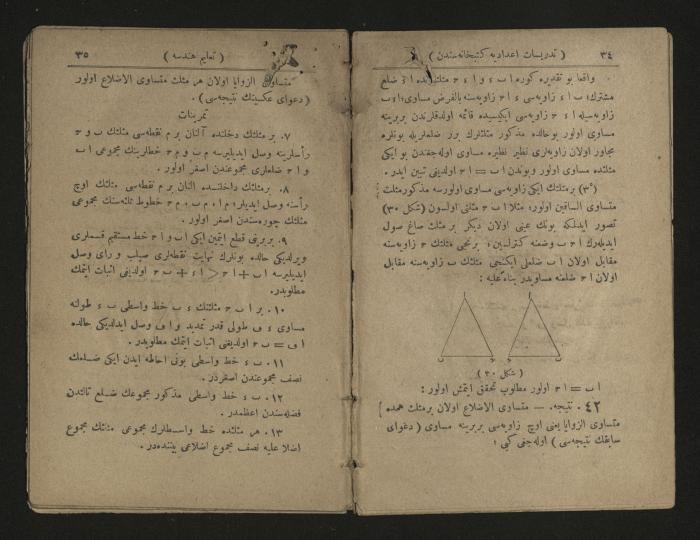 ٣٤
( تدريسات اعداديه كتبخانه‌سندن )
واقعا بو تقديره كوره ا ب ء و ا ء ح مثلثلرنده ا ء ضلع
مشترك؛ ب ا ء زاويه‌سى ء ا ح زاويه‌سنه بالفرض مساوى؛ ا ء ب
زاويه‌سيله ا ء ح زاويه‌سى ايكيسيده قائمه اولدقلرندن بربرينه
مساوى اولور بوحالده مذكور مثلثلرك برر ضلعلريله بونلره
مجاور اولان زاويه‌لرى نظير نظيره مساوى اوله‌جغندن بو ايكى
مثلثده مساوى اولور وبوندن ا ب = ا ح اولديغى تبين ايدر.
(٣°) بر مثلثك ايكى زاويه‌سى مساوى اولورسه مذكور مثلث
متساوى الساقين اولور؛ مثلا ا ب ح مثلثى اولسون (شكل ٣٠)
تصور ايدلكه بونك عينى اولان ديكر بر مثلث صاغ صول
ايديله‌رك ا ح ب وضعنه كتيرلسين؛ برنجى مثلثك ح زاويه‌سنه
مقابل اولان ا ب ضلعى ايكنجى مثلثك ب زاويه‌سنه مقابل
اولان ا ح ضلعنه مساويدر بناء عليه :
( شكل ٣٠ )
ا ب = ا ح اولور مطلوب تحقق ايتمش اولور :
٤٢. نتيجه. — متساوى الاضلاع اولان بر مثلث همده
متساوى الزوايا يعنى اوچ زاويه‌سى بربرينه مساوى ( دعواى
سابقك نتيجه‌سى ) اوله‌جغى كبى ؛
( تعليم هندسه )
٣٥
متساوى الزوايا اولان هر مثلث متساوى الاضلاع اولور
( دعواى عكسينك نتيجه‌سى ) .
تمرينات
٧. بر مثلثك دخلنده آلنان بر م نقطه‌سى مثلثك ب و ح
رأسلرينه وصل ايديليرسه م ب و م ح خطلرينك مجموعى ا ب
و ا ح ضلعلرى مجموعندن اصغر اولور .
٨. بر مثلثك داخلنده النان بر م نقطه‌سى مثلثك اوچ
رأسنه وصل ايديلير؛ م ا ، م ب ، م ح خطوط ثلاثه‌سنك مجموعى
مثلثك چوره‌سندن اصغر اولور .
٩. بربرينى قطع ايتمين ايكى ا ب و ا ح خط مستقيم قسملرى
ويرلديكى حالده بونلرك نهايت نقطه‌لرى صليب وراى وصل
ايديليرسه ا ب + ا ح > ا ء + ب ح اولديغنى اثبات ايتمك
مطلوبدر.
١٠. بر ا ب ح مثلثنك ب ء خط واسطى ب ء طولنه
مساوى ء ف طولى قدر تمديد و ا ف وصل ايدلديكى حالده
ا ف = ب ح اولديغنى اثبات ايتمك مطلوبدر .
١١. ب ء خط واسطى بونى احاطه ايدن ايكى ضلعك
نصف مجموعندن اصغردر .
١٢. ب ء خط واسطى مذكور مجموعك ضلع ثالثدن
فضله‌سندن اعظمدر .
١٣. هر مثلثده خط واسطلرك مجموعى مثلثك مجموع
اضلاعيله نصف مجموع اضلاعى بيننده‌در .